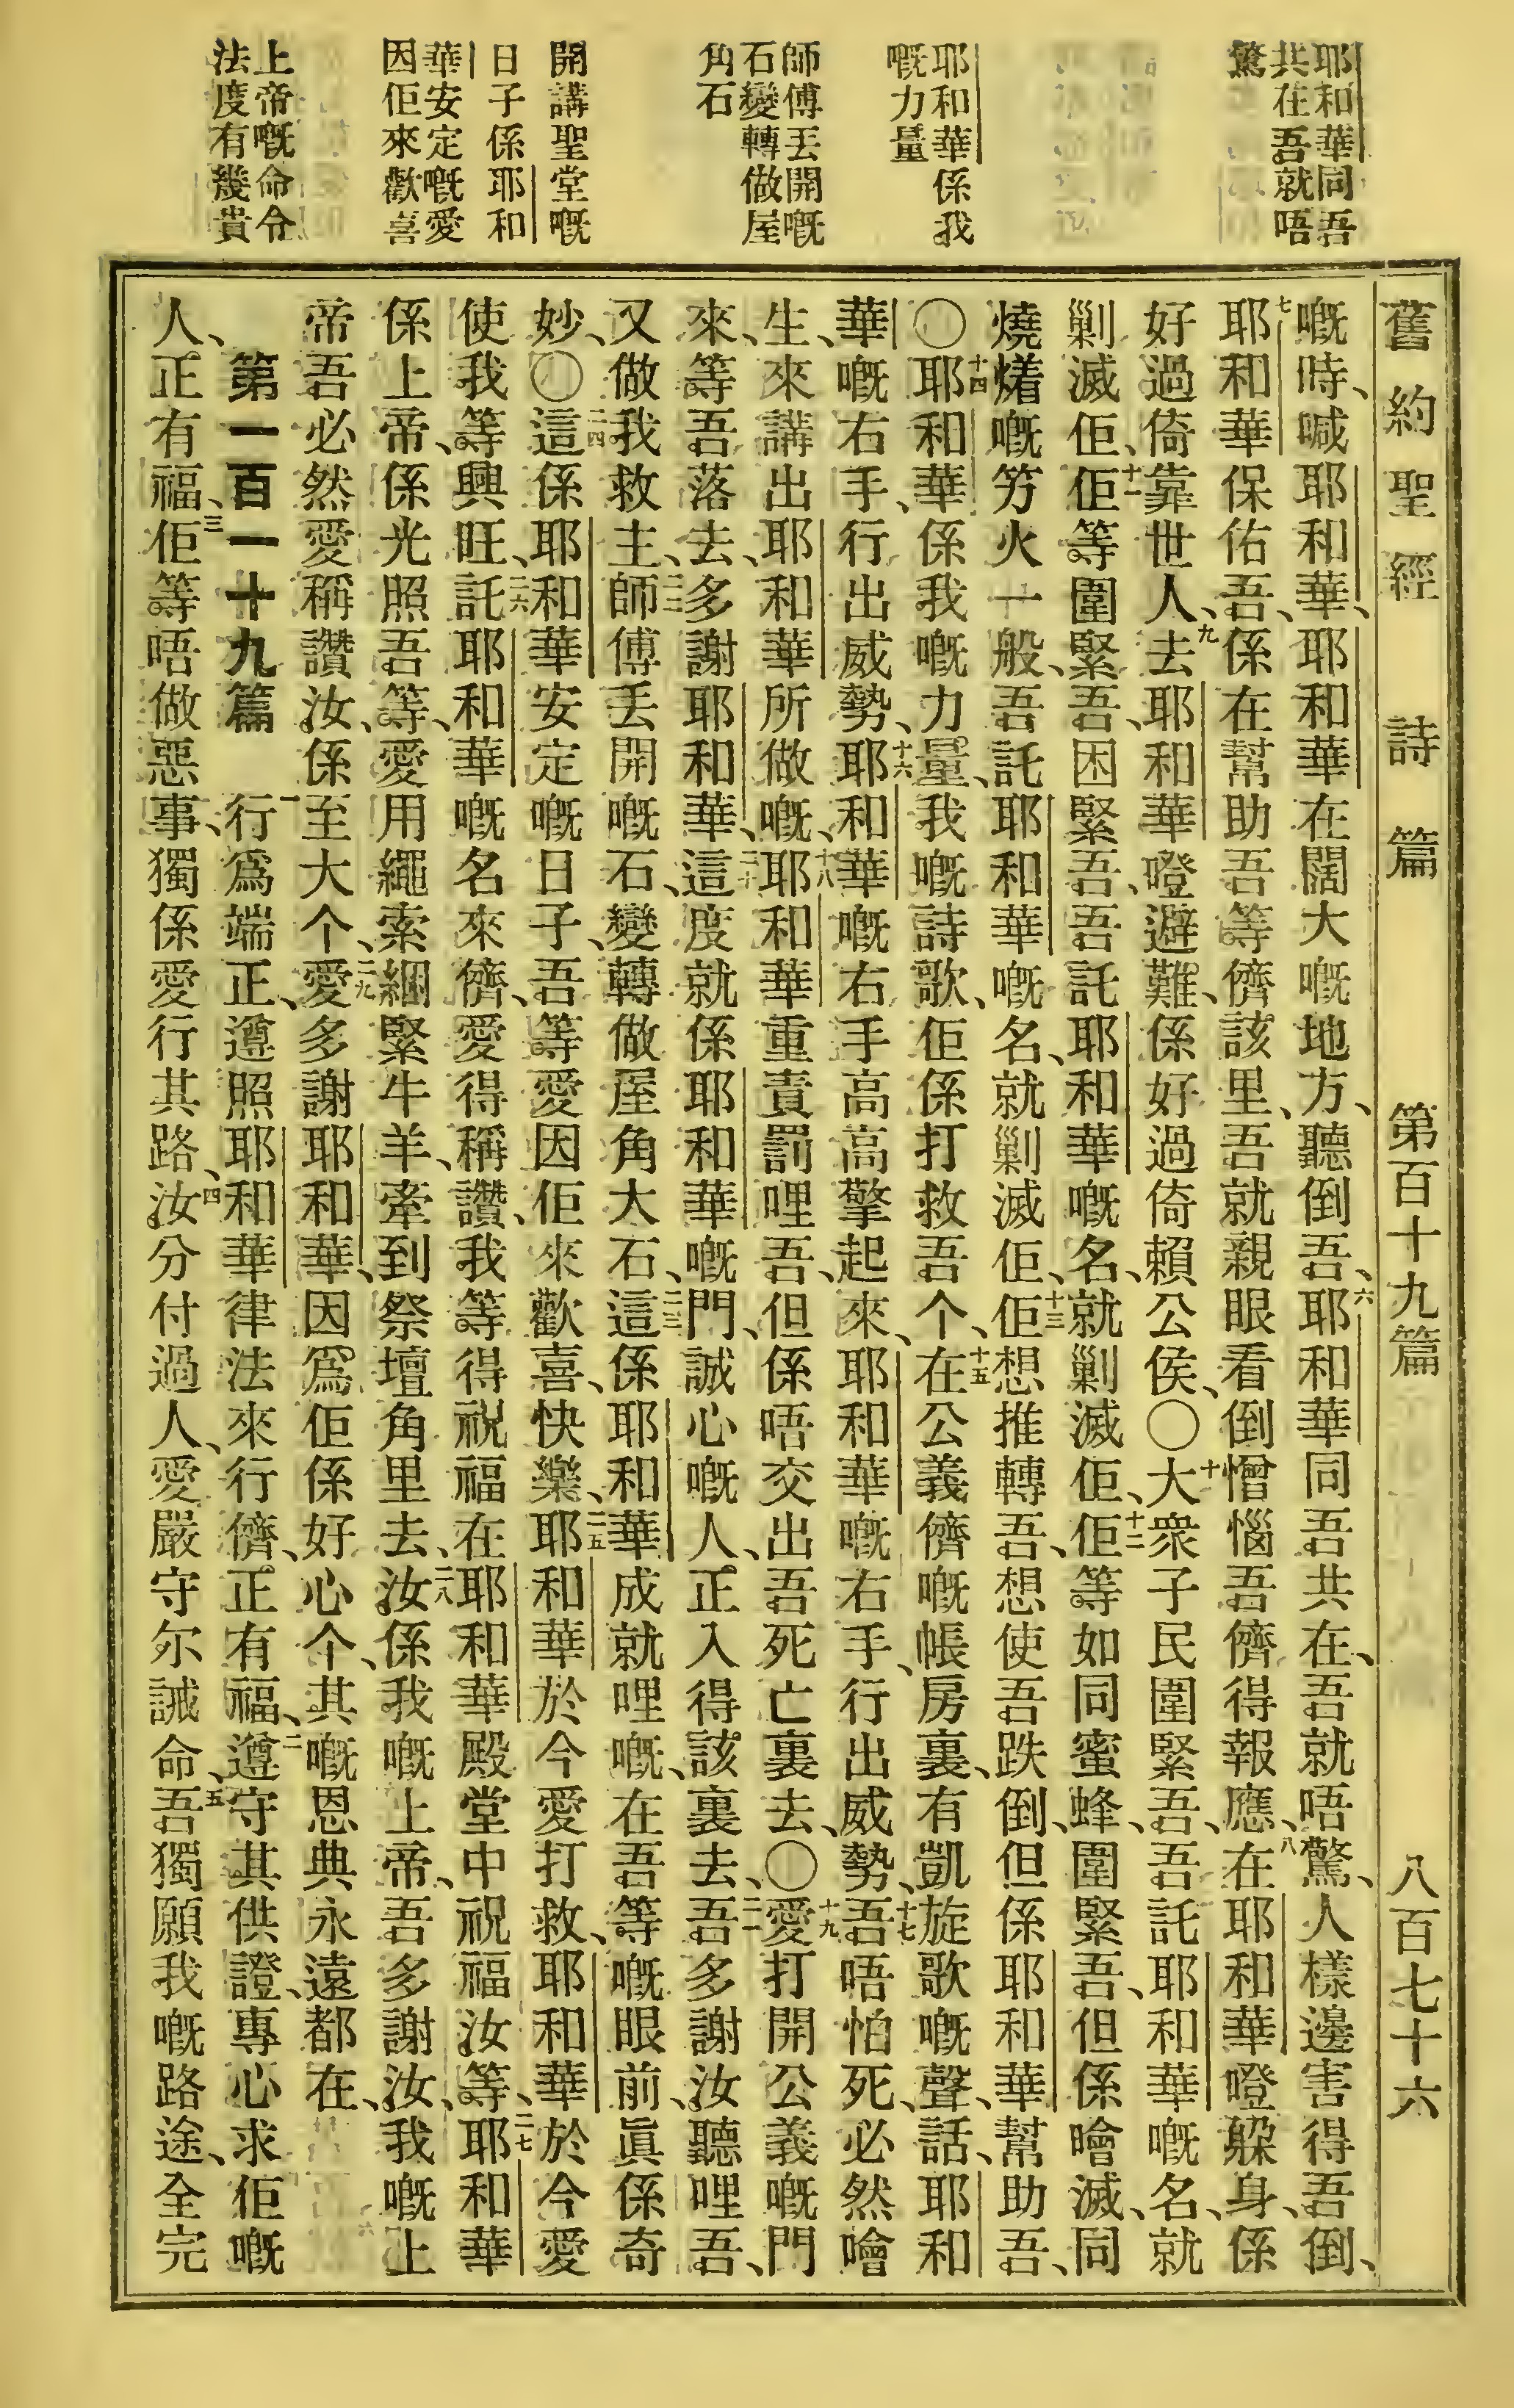 耶和華同吾
共在吾就唔
驚
耶和華係我
嘅力量
師傅丟開嘅
石變轉做屋
角石
開講聖堂嘅
日子係耶和
華安定嘅愛
因佢來歡喜
上帝嘅命令
法度有幾貴
舊約聖經 詩篇 第百十九篇 八百七十六
嘅時、喊耶和華、耶和華在闊大嘅地方、聽倒吾、六耶和華同吾共在、吾就唔驚、人樣邊害得吾倒、
七耶和華保佑吾、係在幫助吾等儕該里、吾就親眼看倒憎惱吾儕得報應、八在耶和華嶝躲身、係
好過倚靠世人、九去耶和華嶝避難、係好過倚賴公侯、〇十大衆子民圍緊吾、吾託耶和華嘅名、就
剿滅佢、十一佢等圍緊吾、困緊吾、吾託耶和華嘅名、就剿滅佢、十二佢等如同蜜蜂、圍緊吾、但係噲滅、同
燒㸃嘅竻火一般、吾託耶和華嘅名、就剿滅佢、十三佢想推轉吾、想使吾跌倒、但係耶和華幫助吾、
〇十四耶和華係我嘅力量、我嘅詩歌、佢係打救吾个、十五在公義儕嘅帳房裏、有凱旋歌嘅聲、話、耶和
華嘅右手、行出威勢、十六耶和華嘅右手高高擎起來、耶和華嘅右手、行出威勢、十七吾唔怕死、必然噲
生、來講出耶和華所做嘅、十八耶和華重責罰哩吾、但係唔交出吾死亡裏去、〇十九愛打開公義嘅門
來、等吾落去、多謝耶和華、二十這度就係耶和華嘅門、誠心嘅人、正入得該裏去、二一吾多謝汝聽哩吾、
又做我救主、二二師傅丟開嘅石、變轉做屋角大石、二三這係耶和華成就哩嘅、在吾等嘅眼前、眞係奇
妙、〇二四這係耶和華安定嘅日子、吾等愛因佢來歡喜、快樂、二五耶和華於今愛打救、耶和華於今愛
使我等興旺、二六託耶和華嘅名來儕、愛得稱讚、我等得祝福在耶和華殿堂中祝福汝等、二七耶和華
係上帝、係光照吾等、愛用繩索綑緊牛羊、牽到祭壇角里去、二八汝係我嘅上帝、吾多謝汝、我嘅上
帝吾必然愛稱讚汝、係至大个、二九愛多謝耶和華、因爲佢係好心个、其嘅恩典永遠都在、
第一百一十九篇 一行爲端正、遵照耶和華律法來行儕、正有福、二遵守其供證、專心求佢嘅
人、正有福、三佢等唔做惡事、獨係愛行其路、四汝分付過人、愛嚴守尔誡命、五吾獨願我嘅路途、全完